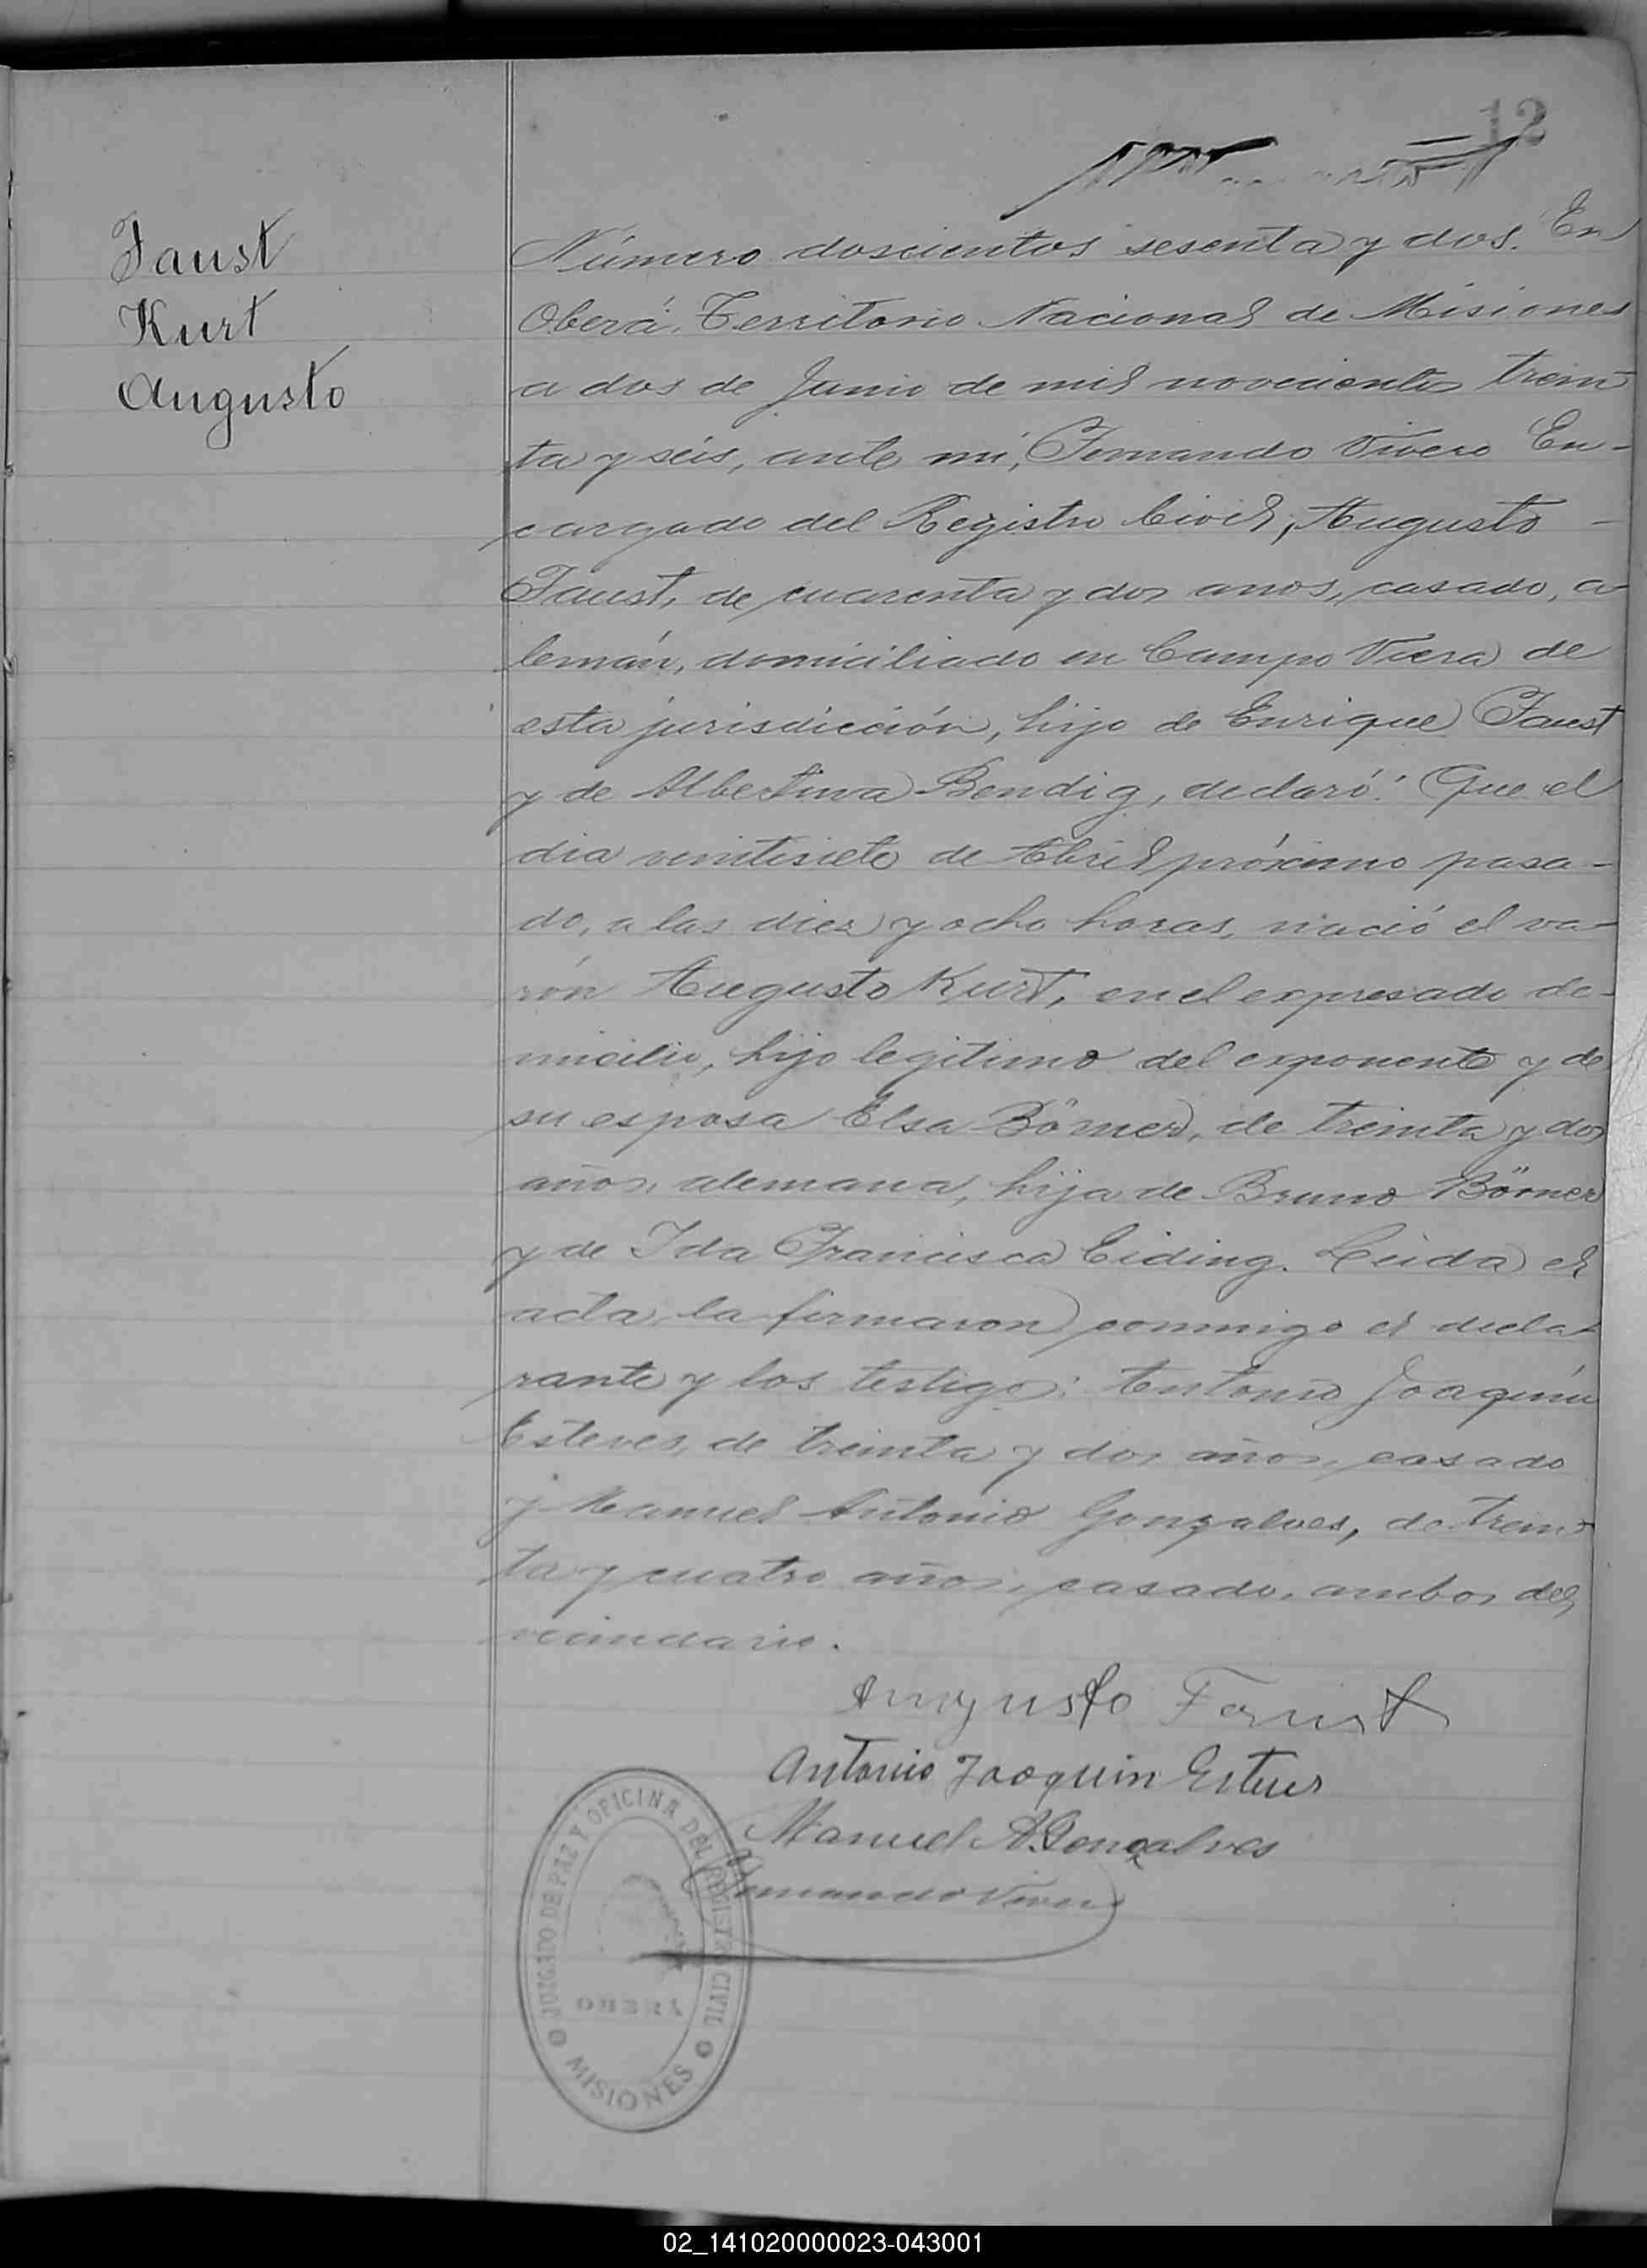 12
Faust
Kurt
Augusto
Número doscientos sesenta y dos. En
Oberá, Territorio Nacional de Misiones
a dos de Junio de mil novecientos trein
ta y seis, ante mí, Fernando Vivero En-
cargado del Registro Civil, Augusto -
Faust, de cuarenta y dos anos, casado, a-
lemán, domiciliado en Campo Viera de
esta jurisdicción, hijo de Enrique Faust
y de Albertina Bendig, declaró: Que el
dia veintisiete de Abril próximo pasa-
do, a las diez y ocho horas, nació el va-
rón Augusto Kurt, en el expresado do-
micilio, hijo legitimo del exponente y de
su esposa Elsa Börner, de treinta y dos
años, alemana, hija de Bruno Börner
y de Ida Francisca Eiding. Leida el
acta, la firmaron conmigo el decla-
rante y los testigo: Antonio Joaquín
Esteves, de treinta y dos años, casado
y Manuel Antonio Gonzalves, de trein-
ta y cuatro años, casado, ambos del
vecindario.
Augusto Faust
Antonio Joaquin Esteves
Manuel A. Gonçalves
Fernando Vivero
JUZGADO DE PAZ Y OFICINA DEL REGISTRO CIVIL
OBERÁ
MISIONES
02_141020000023-043001